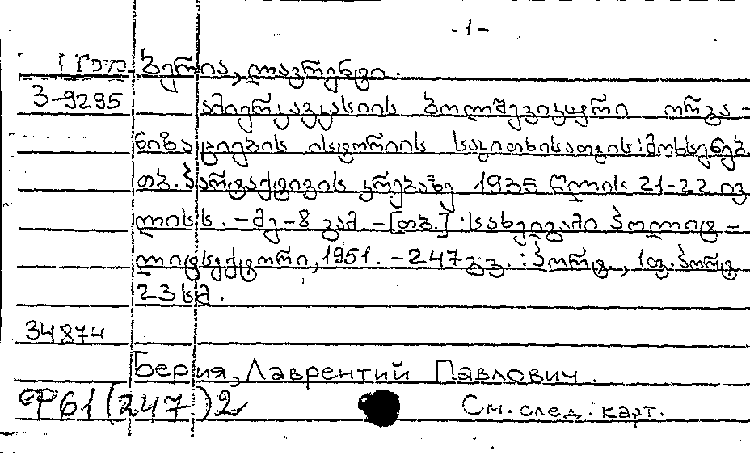 -1-
ბერია, ლავრენტი.
3-9295 ამიერკავკასიის ბოლშევიკური ორგა-
ნიზაციების ისტორიის საკითხისათვის: მოხსენებ.
თბ. პარტაქტივის კრებაზე 1935 წლის 21-22 ივ
ლისს. -მე-8 გამ. -[თბ.]: სახელგამი პოლიტ-
ლიტსექტორი, 1951. -247 გვ.: პორტ., 1 ფ. პორტ.
23 სმ.
34874
Берия, Лаврентий Павлович.
9Р61(247.)2 См. след. карт.